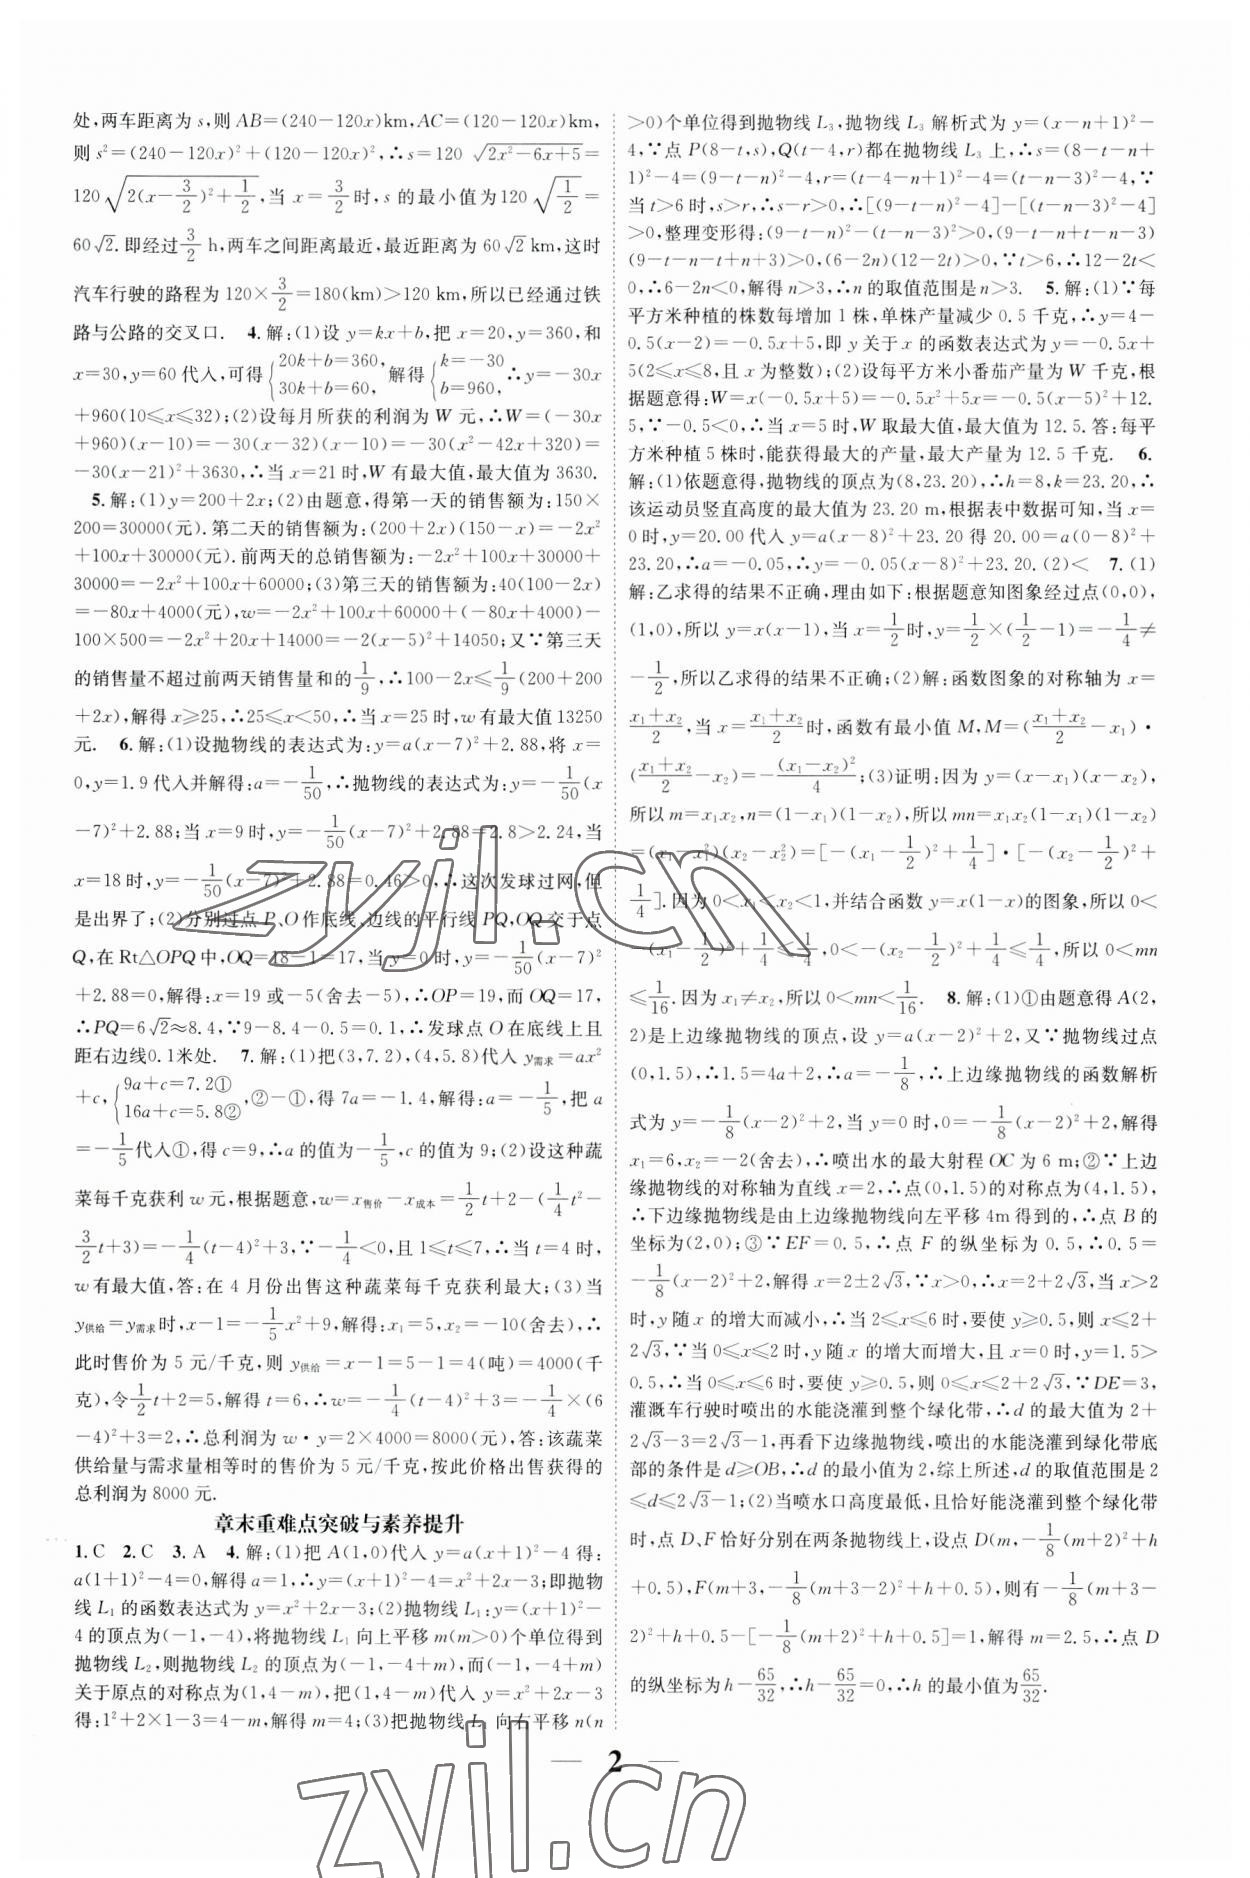 处,两车距离为 s,则 AB=(240-120x)km,AC=(120-120x)km,
则 s²=(240-120x)²+(120-120x)²,∴s=120 √(2x²-6x+5)=
120 √(2(x-3/2)²+1/2),当 x=3/2时,s 的最小值为120 √(1/2)=
60√2.即经过3/2 h,两车之间距离最近,最近距离为 60√2 km,这时
汽车行驶的路程为 120×3/2=180(km)>120 km,所以已经通过铁
路与公路的交叉口. 4.解:(1)设 y=kx+b,把 x=20,y=360,和
x=30,y=60 代入,可得{20k+b=360, 30k+b=60, 解得{k=-30 b=960, ∴y=-30x
+960(10≤x≤32);(2)设每月所获的利润为 W 元,∴W=(-30x
+960)(x-10)=-30(x-32)(x-10)=-30(x²-42x+320)=
-30(x-21)²+3630,∴当 x=21时,W 有最大值,最大值为 3630.
5.解:(1)y=200+2x;(2)由题意,得第一天的销售额为:150×
200=30000(元).第二天的销售额为:(200+2x)(150-x)=-2x²
+100x+30000(元).前两天的总销售额为:-2x²+100x+30000+
30000=-2x²+100x+60000;(3)第三天的销售额为:40(100-2x)
=-80x+4000(元),w=-2x²+100x+60000+(-80x+4000)-
100×500=-2x²+20x+14000=-2(x-5)²+14050;又∵第三天
的销售量不超过前两天销售量和的1/9,∴100-2x≤1/9(200+200
+2x),解得 x≥25,∴25≤x<50,∴当 x=25 时,w 有最大值 13250
元. 6.解:(1)设抛物线的表达式为:y=a(x-7)²+2.88,将 x=
0,y=1.9 代入并解得:a=-1/50,∴抛物线的表达式为:y=-1/50(x
-7)²+2.88;当 x=9 时,y=-1/50(x-7)²+2.88=2.8>2.24,当
x=18 时,y=-1/50(x-7)²+2.88=0.46>0,∴这次发球过网,但
是出界了;(2)分别过点 P、O 作底线、边线的平行线 PQ,OQ 交于点
Q,在 Rt△OPQ 中,OQ=18-1=17,当 y=0 时,y=-1/50(x-7)²
+2.88=0,解得:x=19 或-5(舍去-5),∴OP=19,而 OQ=17,
∴PQ=6√2≈8.4,∵9-8.4-0.5=0.1,∴发球点 O 在底线上且
距右边线0.1米处. 7.解:(1)把(3,7.2),(4,5.8)代入 y需求=ax²
+c,{9a+c=7.2① 16a+c=5.8②,②-①,得 7a=-1.4,解得:a=-1/5,把 a
=-1/5代入①,得 c=9,∴a 的值为-1/5,c 的值为 9;(2)设这种蔬
菜每千克获利 w 元,根据题意,w=x售价-x成本=1/2t+2-(1/4t²-
3/2t+3)=-1/4(t-4)²+3,∵-1/4<0,且 1≤t≤7,∴当 t=4 时,
w 有最大值,答:在 4 月份出售这种蔬菜每千克获利最大;(3)当
y供给=y需求时,x-1=-1/5x²+9,解得:x₁=5,x₂=-10(舍去),∴
此时售价为 5 元/千克,则 y供给=x-1=5-1=4(吨)=4000(千
克),令1/2t+2=5,解得 t=6,∴w=-1/4(t-4)²+3=-1/4×(6
-4)²+3=2,∴总利润为 w·y=2×4000=8000(元),答:该蔬菜
供给量与需求量相等时的售价为 5 元/千克,按此价格出售获得的
总利润为 8000 元.
章末重难点突破与素养提升
1.C 2.C 3.A 4.解:(1)把 A(1,0)代入 y=a(x+1)²-4 得:
a(1+1)²-4=0,解得 a=1,∴y=(x+1)²-4=x²+2x-3;即抛物
线 L₁ 的函数表达式为 y=x²+2x-3;(2)抛物线 L₁:y=(x+1)²-
4 的顶点为(-1,-4),将抛物线 L₁ 向上平移 m(m>0)个单位得到
抛物线 L₂,则抛物线 L₂ 的顶点为(-1,-4+m),而(-1,-4+m)
关于原点的对称点为(1,4-m),把(1,4-m)代入 y=x²+2x-3
得:1²+2×1-3=4-m,解得 m=4;(3)把抛物线 L₁ 向右平移 n(n
>0)个单位得到抛物线 L₃,抛物线 L₃ 解析式为 y=(x-n+1)²-
4,∵点 P(8-t,s),Q(t-4,r)都在抛物线 L₃ 上,∴s=(8-t-n+
1)²-4=(9-t-n)²-4,r=(t-4-n+1)²-4=(t-n-3)²-4,∵
当 t>6 时,s>r,∴s-r>0,∴[(9-t-n)²-4]-[(t-n-3)²-4]
>0,整理变形得:(9-t-n)²-(t-n-3)²>0,(9-t-n+t-n-3)
(9-t-n-t+n+3)>0,(6-2n)(12-2t)>0,∵t>6,∴12-2t<
0,∴6-2n<0,解得 n>3,∴n 的取值范围是 n>3. 5.解:(1)∵每
平方米种植的株数每增加 1 株,单株产量减少 0.5 千克,∴y=4-
0.5(x-2)=-0.5x+5,即 y 关于 x 的函数表达式为 y=-0.5x+
5(2≤x≤8,且 x 为整数);(2)设每平方米小番茄产量为 W 千克,根
据题意得:W=x(-0.5x+5)=-0.5x²+5x=-0.5(x-5)²+12.
5,∵-0.5<0,∴当 x=5 时,W 取最大值,最大值为 12.5.答:每平
方米种植 5 株时,能获得最大的产量,最大产量为 12.5 千克. 6.
解:(1)依题意得,抛物线的顶点为(8,23.20),∴h=8,k=23.20,∴
该运动员竖直高度的最大值为 23.20 m,根据表中数据可知,当 x=
0时,y=20.00 代入 y=a(x-8)²+23.20 得 20.00=a(0-8)²+
23.20,∴a=-0.05,∴y=-0.05(x-8)²+23.20.(2)< 7.(1)
解:乙求得的结果不正确,理由如下:根据题意知图象经过点(0,0),
(1,0),所以 y=x(x-1),当 x=1/2时,y=1/2×(1/2-1)=-1/4≠
-1/2,所以乙求得的结果不正确;(2)解:函数图象的对称轴为 x=
(x₁+x₂)/2,当 x=(x₁+x₂)/2时,函数有最小值 M,M=((x₁+x₂)/2-x₁)·
((x₁+x₂)/2-x₂)=-(x₁-x₂)²/4;(3)证明:因为 y=(x-x₁)(x-x₂),
所以 m=x₁x₂,n=(1-x₁)(1-x₂),所以 mn=x₁x₂(1-x₁)(1-x₂)
=(x₁-x₁²)(x₂-x₂²)=[-(x₁-1/2)²+1/4]·[-(x₂-1/2)²+
1/4].因为 0<x₁<x₂<1,并结合函数 y=x(1-x)的图象,所以 0<
-(x₁-1/2)²+1/4≤1/4,0<-(x₂-1/2)²+1/4≤1/4,所以 0<mn
≤1/16.因为 x₁≠x₂,所以 0<mn<1/16. 8.解:(1)①由题意得 A(2,
2)是上边缘抛物线的顶点,设 y=a(x-2)²+2,又∵抛物线过点
(0,1.5),∴1.5=4a+2,∴a=-1/8,∴上边缘抛物线的函数解析
式为 y=-1/8(x-2)²+2,当 y=0 时,0=-1/8(x-2)²+2,解得
x₁=6,x₂=-2(舍去),∴喷出水的最大射程 OC 为 6 m;②∵上边
缘抛物线的对称轴为直线 x=2,∴点(0,1.5)的对称点为(4,1.5),
∴下边缘抛物线是由上边缘抛物线向左平移 4m 得到的,∴点 B 的
坐标为(2,0);③∵EF=0.5,∴点 F 的纵坐标为 0.5,∴0.5=
-1/8(x-2)²+2,解得 x=2±2√3,∵x>0,∴x=2+2√3,当 x>2
时,y 随 x 的增大而减小,∴当 2≤x≤6 时,要使 y≥0.5,则 x≤2+
2√3,∵当 0≤x≤2 时,y 随 x 的增大而增大,且 x=0 时,y=1.5>
0.5,∴当 0≤x≤6 时,要使 y≥0.5,则 0≤x≤2+2√3,∵DE=3,
灌溉车行驶时喷出的水能浇灌到整个绿化带,∴d 的最大值为 2+
2√3-3=2√3-1,再看下边缘抛物线,喷出的水能浇灌到绿化带底
部的条件是 d≥OB,∴d 的最小值为 2,综上所述,d 的取值范围是 2
≤d≤2√3-1;(2)当喷水口高度最低,且恰好能浇灌到整个绿化带
时,点 D、F 恰好分别在两条抛物线上,设点 D(m,-1/8(m+2)²+h
+0.5),F(m+3,-1/8(m+3-2)²+h+0.5),则有-1/8(m+3-
2)²+h+0.5-[-1/8(m+2)²+h+0.5]=1,解得 m=2.5,∴点 D
的纵坐标为 h-65/32,∴h-65/32=0,∴h 的最小值为65/32.
2
zyjl.cn
zyjl.cn